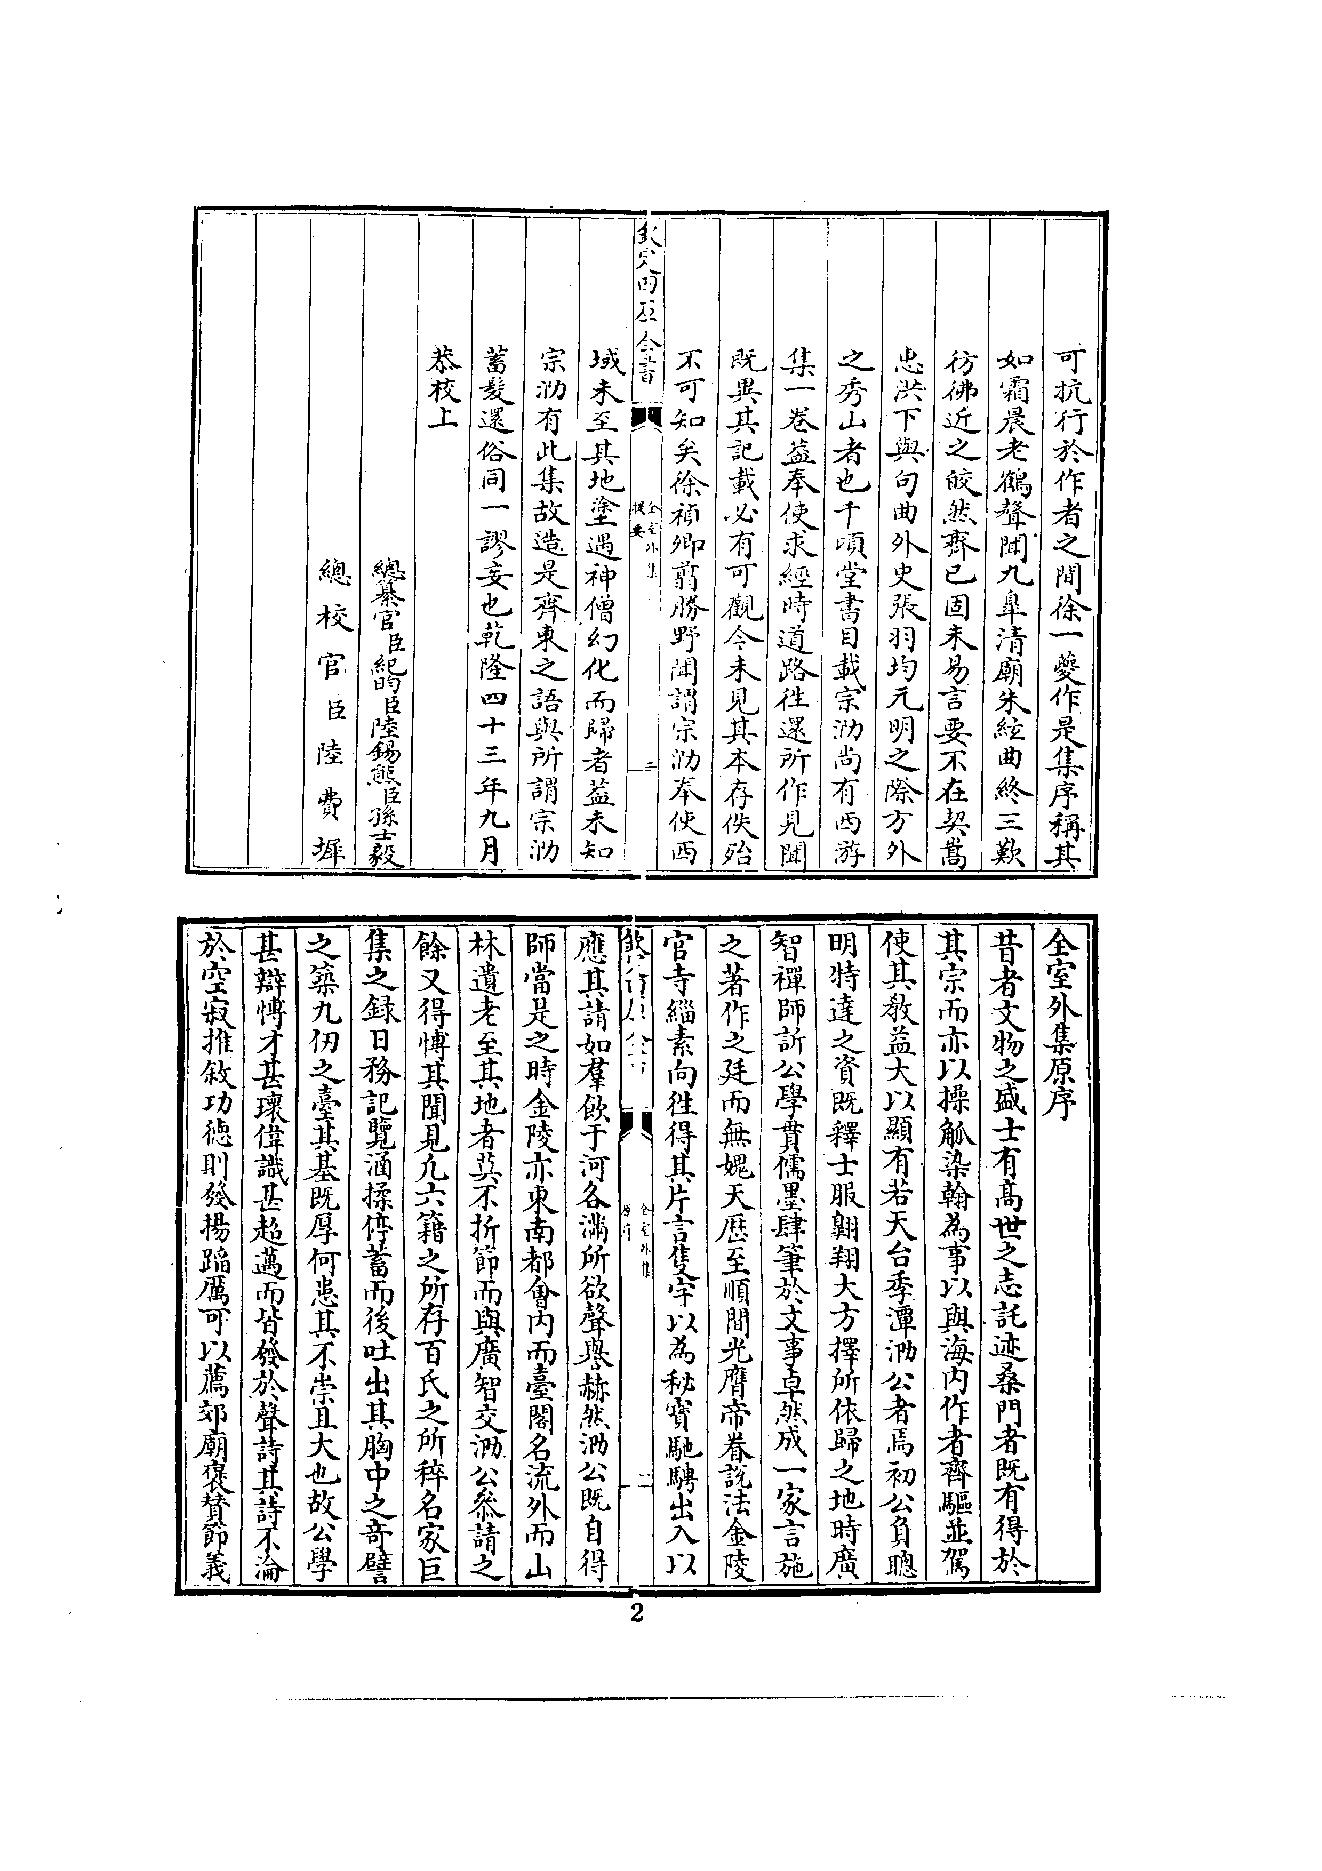 可抗行於作者之間徐一夔作是集序稱其
如霜晨老鶴聲聞九臯清廟朱絃曲終三歎
彷彿近之皎然齊已固未易言要不在契嵩
惠洪下與句曲外史張羽均元明之際方外
之秀山者也千頃堂書目載宗泐尚有西游
集一卷葢奉使求經時道路徃還所作見聞
既異其記載必有可觀今未見其本存佚殆
不可知矣徐禎卿翦勝野聞謂宗泐奉使西
欽定四庫全書
全室外集
提要
三
域未至其地塗遇神僧幻化而歸者葢未知
宗泐有此集故造是齊東之語與所謂宗泐
蓄髮還俗同一謬妄也乾隆四十三年九月
恭校上
總纂官臣紀昀臣陸錫熊臣孫士毅
總校官臣陸費墀
全室外集原序
昔者文物之盛士有髙世之志託迹桑門者既有得於
其宗而亦以操觚染翰為事以與海内作者齊驅並駕
使其教益大以顯有若天台季潭泐公者焉初公負聰
明特達之資既釋士服翺翔大方擇所依歸之地時廣
智禪師訢公學貫儒墨肆筆於文事卓然成一家言施
之著作之廷而無媿天厯至順間光膺帝眷説法金陵
官寺緇素向徃得其片言隻字以為秘寳馳騁出入以
全室外集
原序
一
應其請如羣飲于河各滿所欲聲譽赫然泐公既自得
師當是之時金陵亦東南都會内而臺閣名流外而山
林遺老至其地者莫不折節而與廣智交泐公叅請之
餘又得愽其聞見凢六籍之所存百氏之所稡名家巨
集之録日務記覽涵揉停蓄而後吐出其胸中之竒譬
之築九仞之臺其基既厚何患其不崇且大也故公學
甚辯愽才甚瓌偉識甚超邁而皆發於聲詩其詩不淪
於空寂推敘功徳則發揚蹈厲可以薦郊廟褒賛節義
2